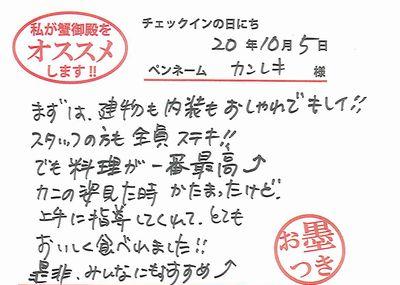 私が蟹御殿を
オススメ
します!!
チェックインの日にち
20年10月5日
ペンネーム カンレキ 様
まずは、建物も内装もおしゃれでキレイ!!
スタッフの方も全員ステキ!!
でも料理が一番最高↗
カニの姿見た時 かたまったけど、
上手に指導してくれて、とても
おいしく食べれました!!
是非、みんなにもおすすめ↗
お墨
つき